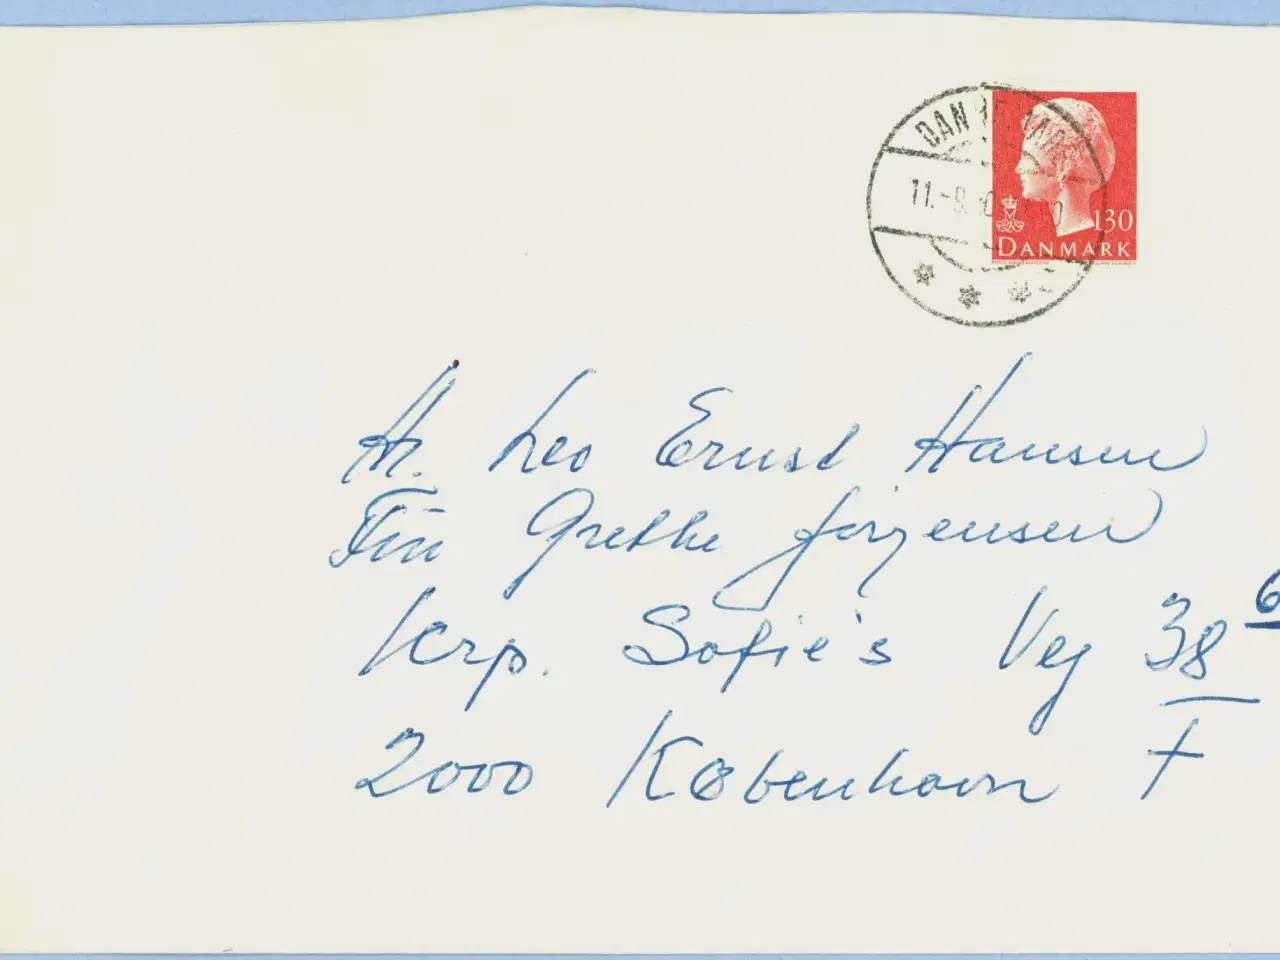 130
DANMARK
Hr. Leo Ernst Hansen
Grethe Jørgensen
Krp. Sofie's Vej 38 6
2000 København F